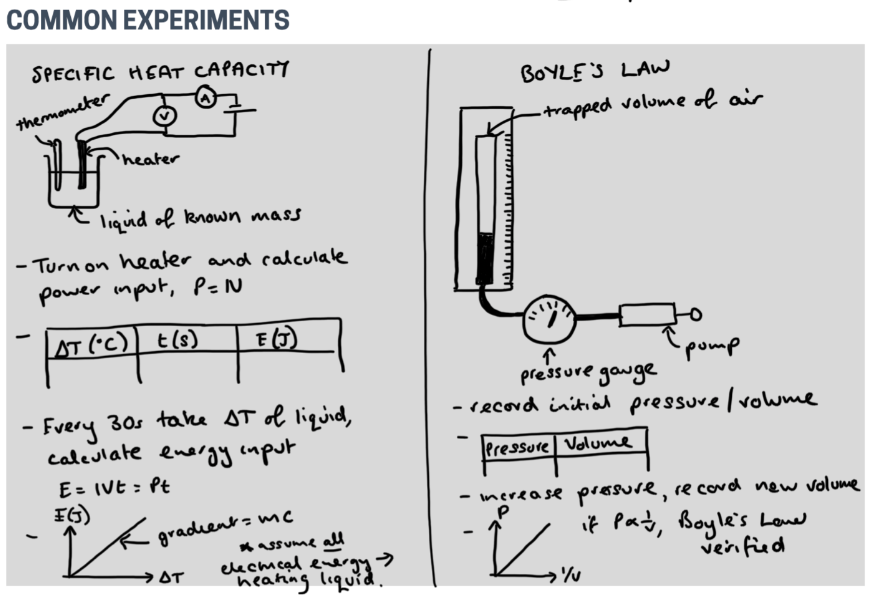 COMMON EXPERIMENTS
SPECIFIC HEAT CAPACITY
thermometer
A
V
heater
liquid of known mass
- Turn on heater and calculate
power input, P = IV
- ΔT (°C) t(s) E(J)
- Every 30s take ΔT of liquid,
calculate energy input
E = IVt = Pt
E(J)
- gradient = mc
* assume all
electrical energy →
heating liquid.
ΔT
BOYLE'S LAW
trapped volume of air
pump
pressure gauge
- record initial pressure/volume
- Pressure Volume
- increase pressure, record new volume
P
- if P∝1/v, Boyle's Law
verified
1/v